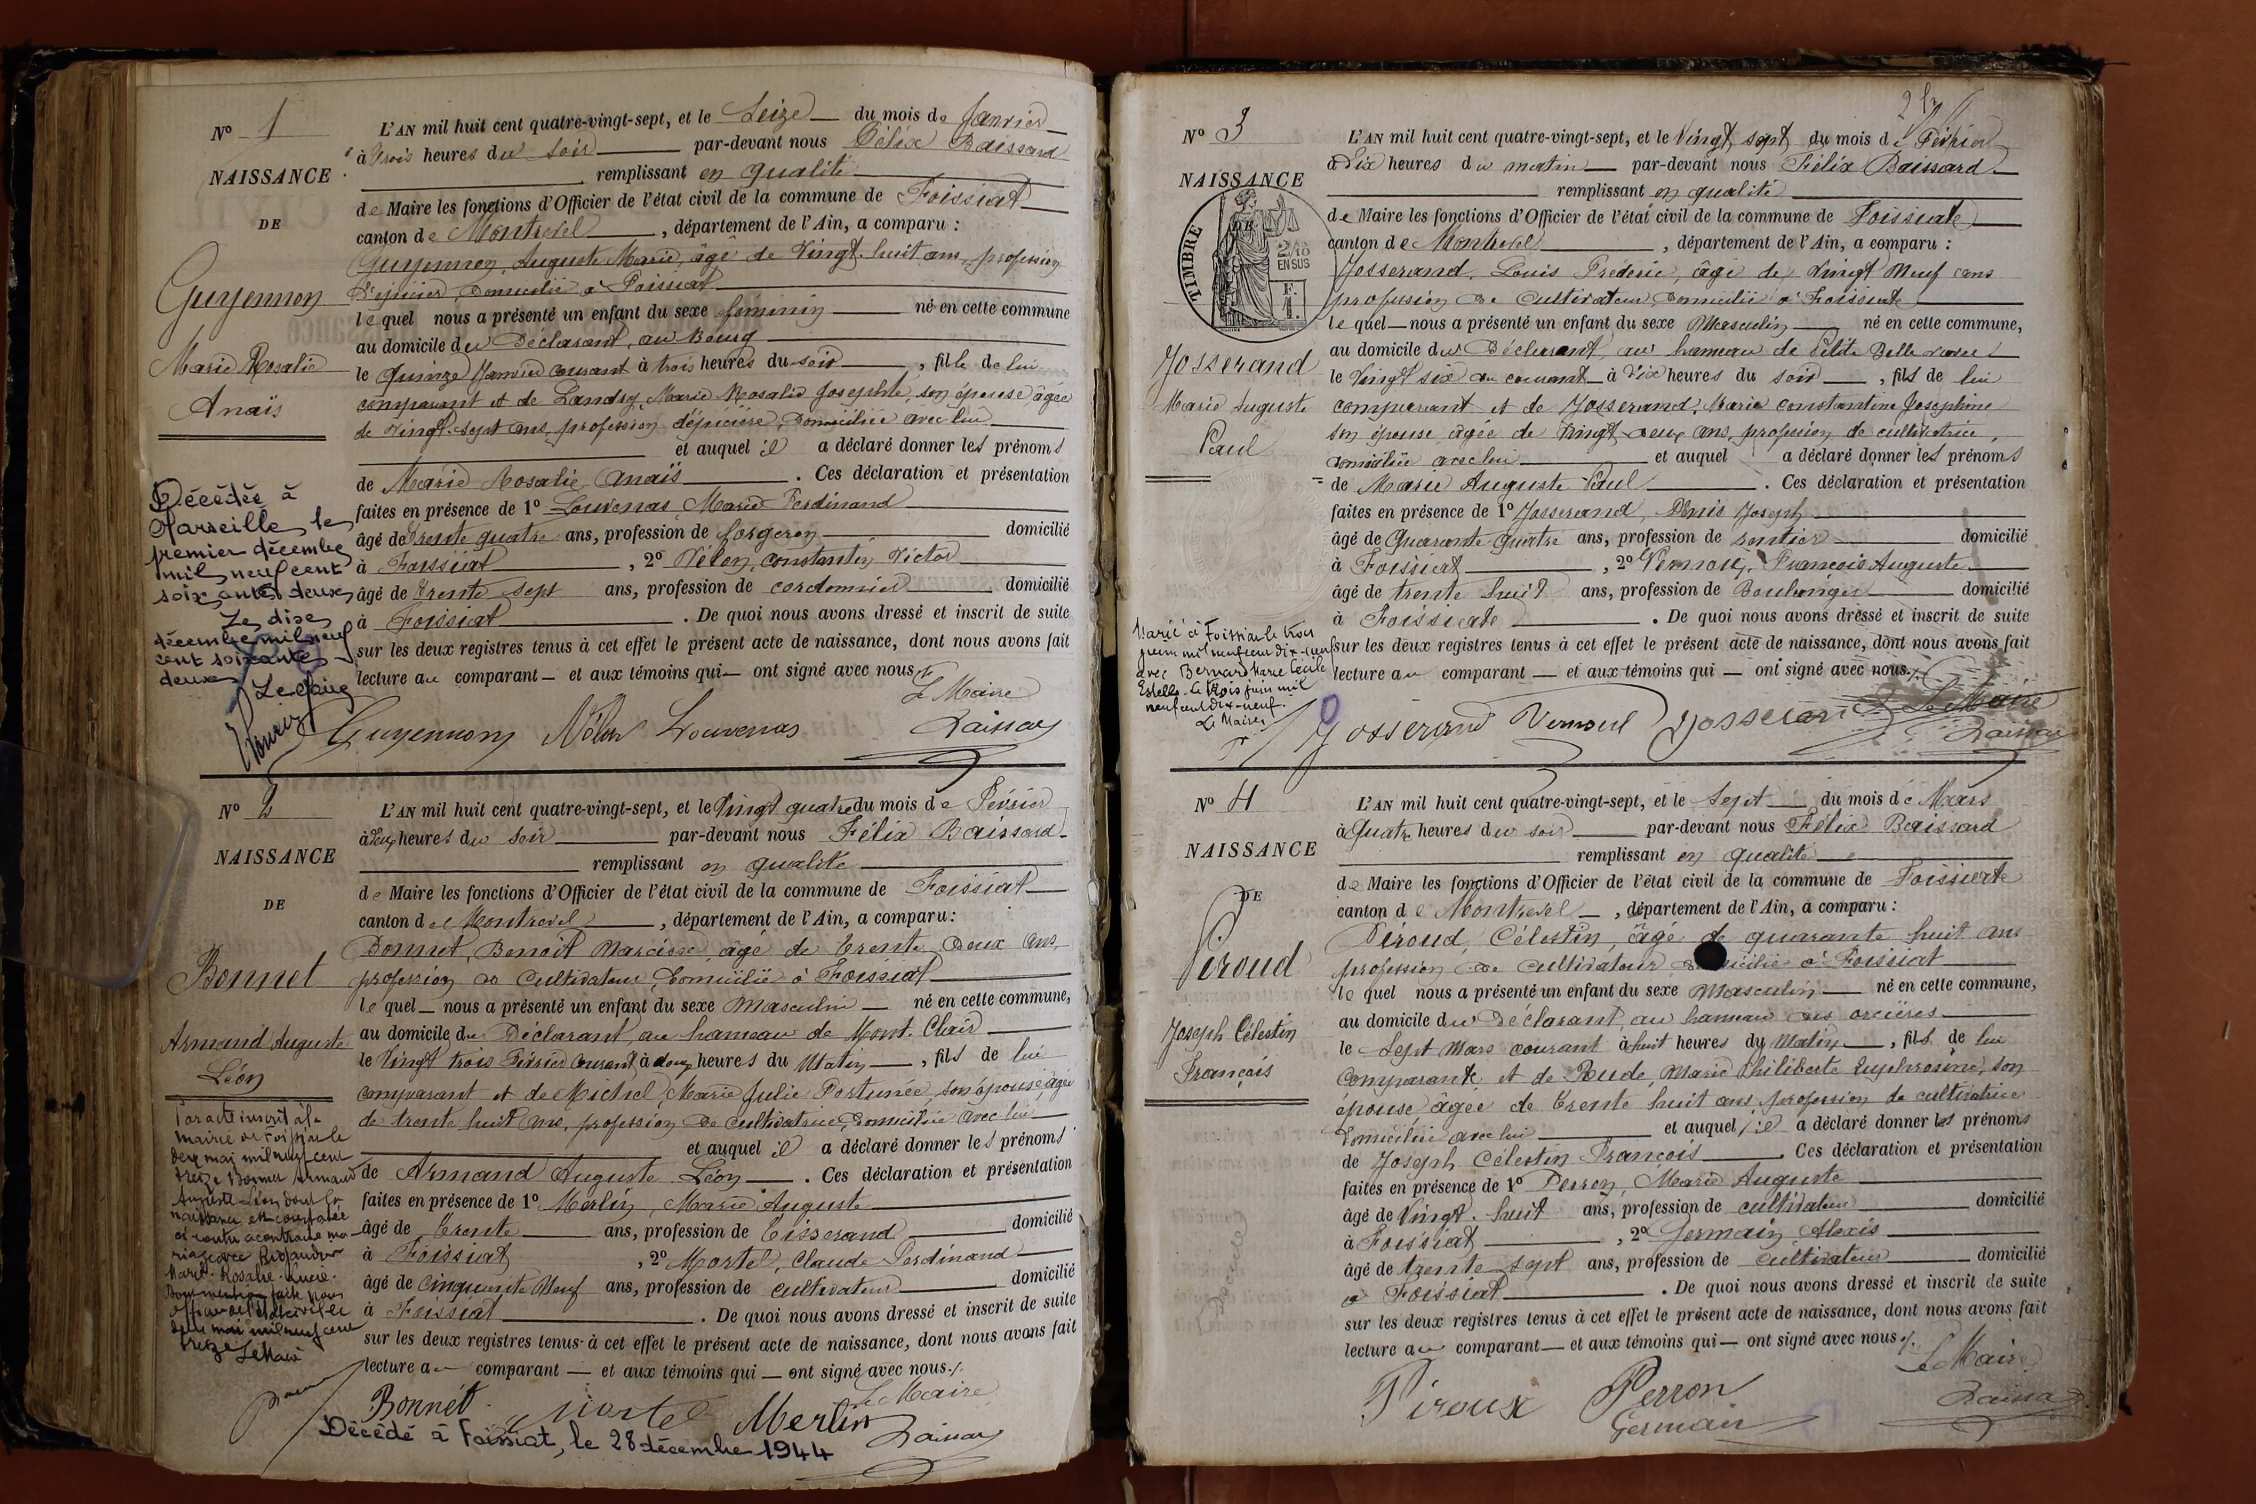 N° 1
NAISSANCE
DE
Guyennon
Marie Rosalie
Anaïs
Décédée à
Marseille le
premier décembre
mil neuf cent
soixante deux
Le dix
décembre mil neuf
cent soixante
deux
Le Maire
L'AN mil huit cent quatre-vingt-sept, et le Seize du mois de Janvier
à trois heures du soir par-devant nous Félix Baissard
remplissant en qualité
de Maire les fonctions d'Officier de l'état civil de la commune de Foissiat
canton de Montrevel, département de l'Ain, a comparu :
Guyennon, Auguste Marie, âgé de Vingt-huit ans, profession
d'épicier, domicilié à Foissiat
lequel nous a présenté un enfant du sexe féminin né en cette commune
au domicile du Déclarant, au Bourg
le Quinze Janvier courant à trois heures du soir, fille de lui
comparant et de Landry, Marie Rosalie Josephte, son épouse âgée
de Vingt-sept ans, profession d'épicière, domiciliée avec lui
et auquel il a déclaré donner les prénoms
de Marie Rosalie Anaïs. Ces déclaration et présentation
faites en présence de 1° Louvenas, Marie Ferdinand
âgé de Trente quatre ans, profession de forgeron domicilié
à Foissiat, 2° Vélon, constantin Victor
âgé de Trente sept ans, profession de cordonnier domicilié
à Foissiat. De quoi nous avons dressé et inscrit de suite
sur les deux registres tenus à cet effet le présent acte de naissance, dont nous avons fait
lecture au comparant et aux témoins qui ont signé avec nous
Le Maire
Guyennon Vélon Louvenas
N° 2
NAISSANCE
DE
Bonnet
Armand Auguste
Léon
Par acte inscrit à la
mairie de Foissiat le
deux mai mil neuf cent
treize Bonnet Armand
Auguste Léon dont la
naissance est constatée
ci-contre a contracté ma-
riage avec
Marie Rosalie Lucie.
Dont mention faite par nous
officier de l'état civil le
deux mai mil neuf cent
treize
Le Maire
L'AN mil huit cent quatre-vingt-sept, et le Vingt quatre du mois de Février
à Deux heures du soir par-devant nous Félix Baissard
remplissant en qualité
de Maire les fonctions d'Officier de l'état civil de la commune de Foissiat
canton de Montrevel, département de l'Ain, a comparu :
Bonnet, Benoît Narcisse, âgé de Trente Deux ans,
profession de Cultivateur, Domicilié à Foissiat
lequel nous a présenté un enfant du sexe Masculin né en cette commune,
au domicile du Déclarant, au hameau de Mont-Clair
le Vingt trois Février courant à deux heures du Matin, fils de lui
comparant et de Michel, Marie Julie Fortunée, son épouse, âgée
de trente huit ans, profession de cultivatrice, Domiciliée avec lui
et auquel il a déclaré donner les prénoms
de Armand Auguste Léon. Ces déclaration et présentation
faites en présence de 1° Merlin, Marie Auguste
âgé de Trente ans, profession de Tisserand domicilié
à Foissiat, 2° Mortel, Claude Ferdinand
âgé de Cinquante Neuf ans, profession de cultivateur domicilié
à Foissiat. De quoi nous avons dressé et inscrit de suite
sur les deux registres tenus à cet effet le présent acte de naissance, dont nous avons fait
lecture au comparant et aux témoins qui ont signé avec nous.
Le Maire
Bonnet Mortel Merlin
Décédé à Foissiat, le 28 décembre 1944
N° 3
NAISSANCE
DE
TIMBRE
EN SUS
Josserand
Marie Auguste
Paul
Marié à Foissiat le trois
juin mil neuf cent dix-neuf
avec Bernard Marie Cécile
Estelle. Le trois juin mil
neuf cent dix-neuf.
Le Maire
L'AN mil huit cent quatre-vingt-sept, et le Vingt sept du mois de Février
à Dix heures du matin par-devant nous Félix Baissard
remplissant en qualité
de Maire les fonctions d'Officier de l'état civil de la commune de Foissiat
canton de Montrevel, département de l'Ain, a comparu :
Josserand, Louis Frédéric, âgé de Vingt Neuf ans
profession de Cultivateur domicilié à Foissiat
lequel nous a présenté un enfant du sexe Masculin né en cette commune,
au domicile du Déclarant, au hameau de Petite
le Vingt six du courant à Dix heures du soir, fils de lui
comparant et de Josserand, Marie constantine Josephine
son épouse âgée de Vingt deux ans, profession de cultivatrice,
domiciliée avec lui et auquel a déclaré donner les prénoms
de Marie Auguste Paul. Ces déclaration et présentation
faites en présence de 1° Josserand, Denis Joseph
âgé de Quarante quatre ans, profession de rentier domicilié
à Foissiat, 2° Vernoux, François Auguste
âgé de trente huit ans, profession de Boulanger domicilié
à Foissiat. De quoi nous avons dressé et inscrit de suite
sur les deux registres tenus à cet effet le présent acte de naissance, dont nous avons fait
lecture au comparant et aux témoins qui ont signé avec nous.
Le Maire
Josserand Josserand
N° 4
NAISSANCE
DE
Piroud
Joseph Célestin
François
L'AN mil huit cent quatre-vingt-sept, et le Sept du mois de Mars
à Quatre heures du soir par-devant nous Félix Baissard
remplissant en qualité
de Maire les fonctions d'Officier de l'état civil de la commune de Foissiat
canton de Montrevel, département de l'Ain, a comparu :
Piroud, Célestin, âgé de quarante huit ans
profession de cultivateur domicilié à Foissiat
lequel nous a présenté un enfant du sexe Masculin né en cette commune,
au domicile du Déclarant, au hameau des orcières
le Sept Mars courant à huit heures du Matin, fils de lui
comparant et de Rude, Marie Philiberte Euphrosine, son
épouse âgée de trente huit ans, profession de cultivatrice
domiciliée avec lui et auquel il a déclaré donner les prénoms
de Joseph Célestin François Ces déclaration et présentation
faites en présence de 1° Perron, Marie Auguste
âgé de Vingt-huit ans, profession de cultivateur domicilié
à Foissiat, 2° Germain Alexis
âgé de trente sept ans, profession de cultivateur domicilié
à Foissiat. De quoi nous avons dressé et inscrit de suite
sur les deux registres tenus à cet effet le présent acte de naissance, dont nous avons fait
lecture au comparant et aux témoins qui ont signé avec nous
Le Maire
Piroux Perron
Germain